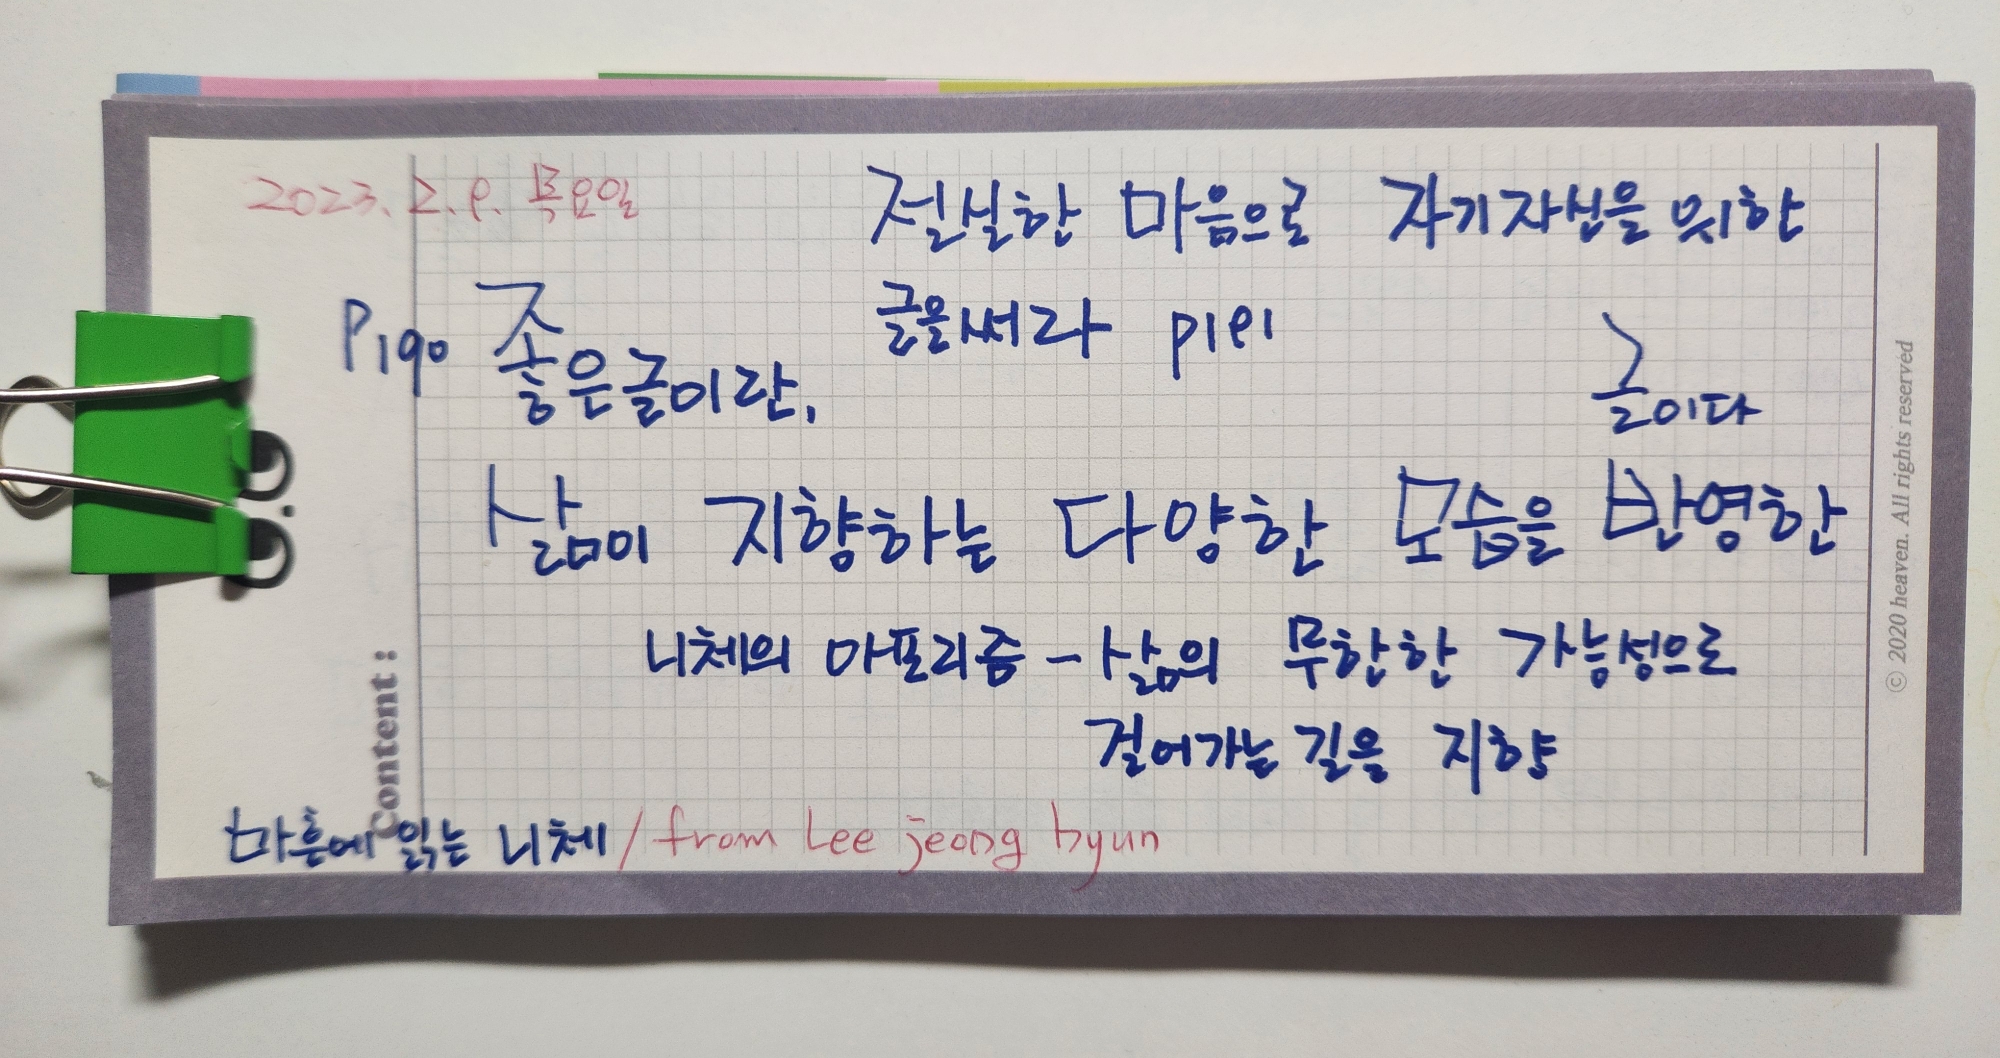 2023. 2. 9. 목요일
절실한 마음으로 자기자신을 위한
글을써라 P191
P190 좋은글이란,
글이다
삶이 지향하는 다양한 모습을 반영한
니체의 아포리즘 - 삶의 무한한 가능성으로
걸어가는 길을 지향
Content :
마흔에 읽는 니체 / from Lee jeong hyun
© 2020 heaven. All rights reserved